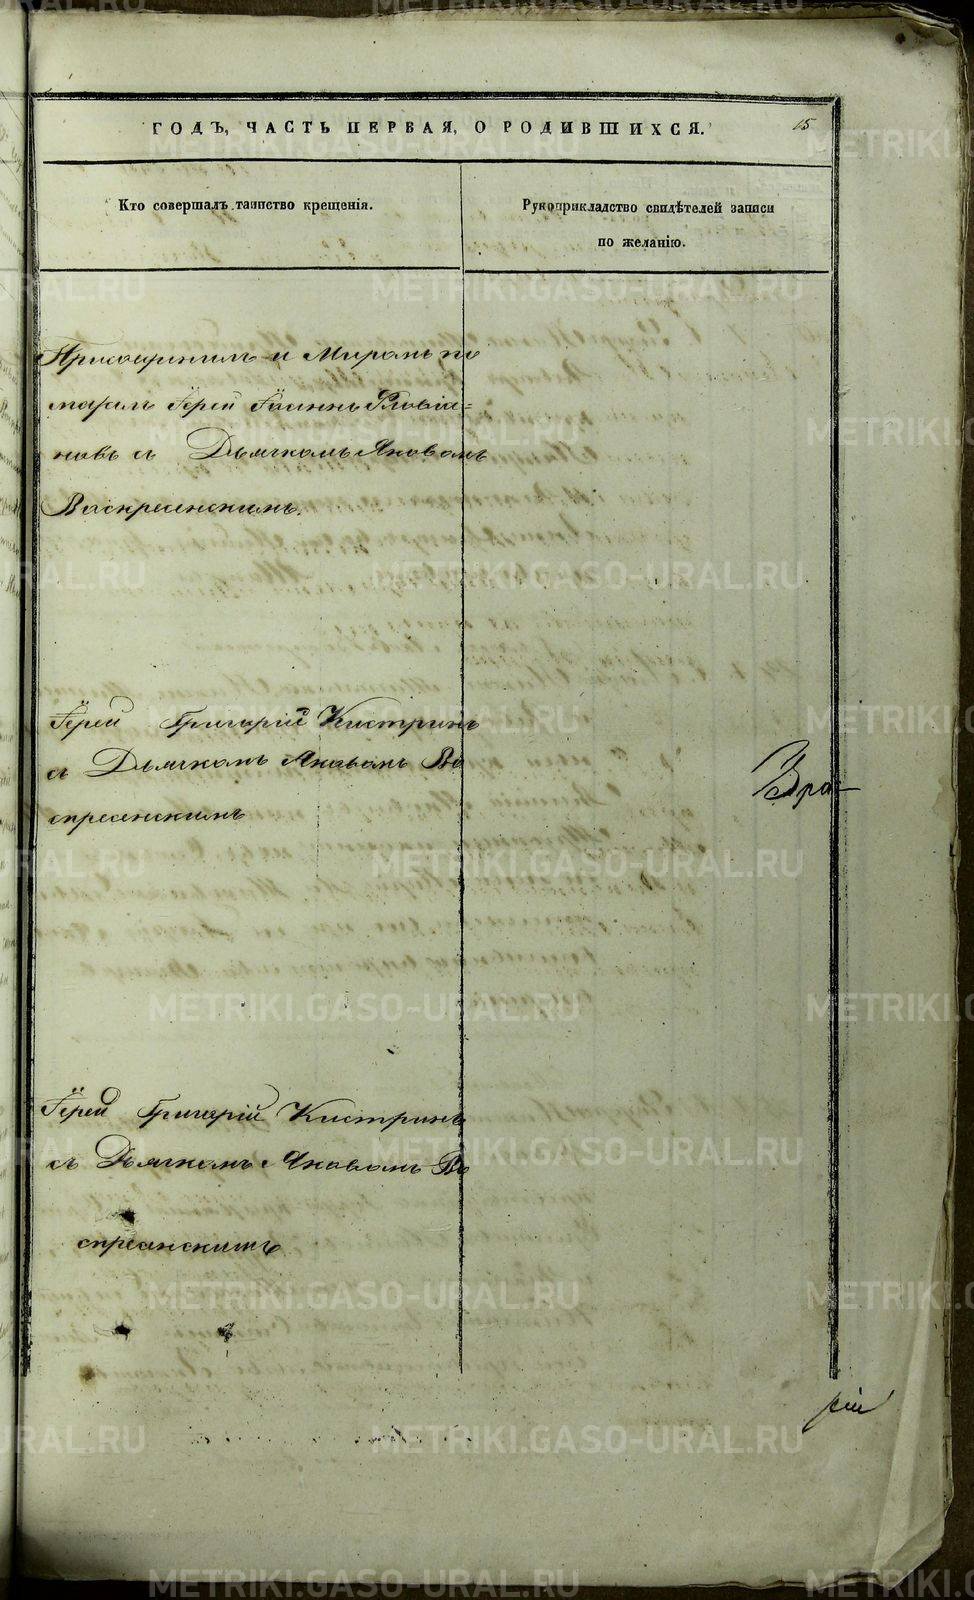 ГОДЪ, ЧАСТЬ ПЕРВАЯ, О РОДИВШИХСЯ.
15
Кто совершалъ таинство крещенія.
Рукоприкладство свидѣтелей записи
по желанію.
Присоединилъ и Муромъ по
мазалъ Іерей Іоаннъ Флавіа=
новъ съ Дьячкомъ Яковомъ
Воскресенскимъ.
Іерей Григорій Кистринъ
съ Дьячкомъ Яковомъ Во
скресенскимъ
Іерей Григорій Кистринъ
съ Дьячкомъ Яковомъ Во
скресенскимъ
METRIKI.GASO-URAL.RU